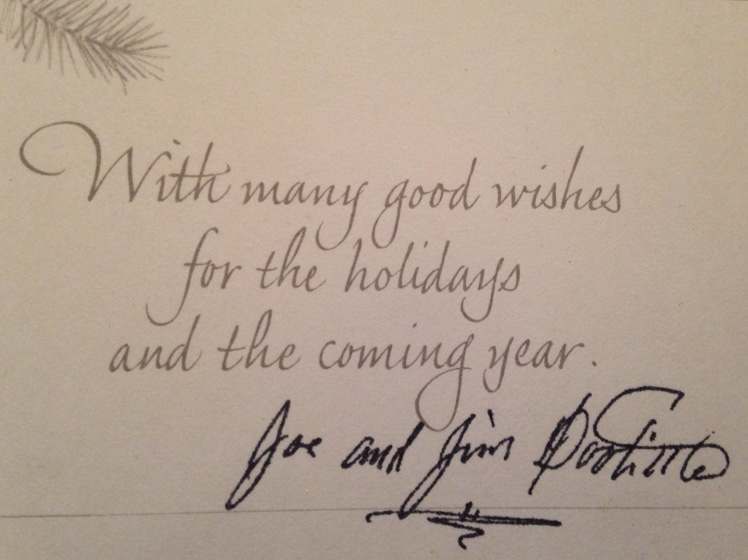 With many good wishes
for the holidays
and the coming year.
Joe and Jim